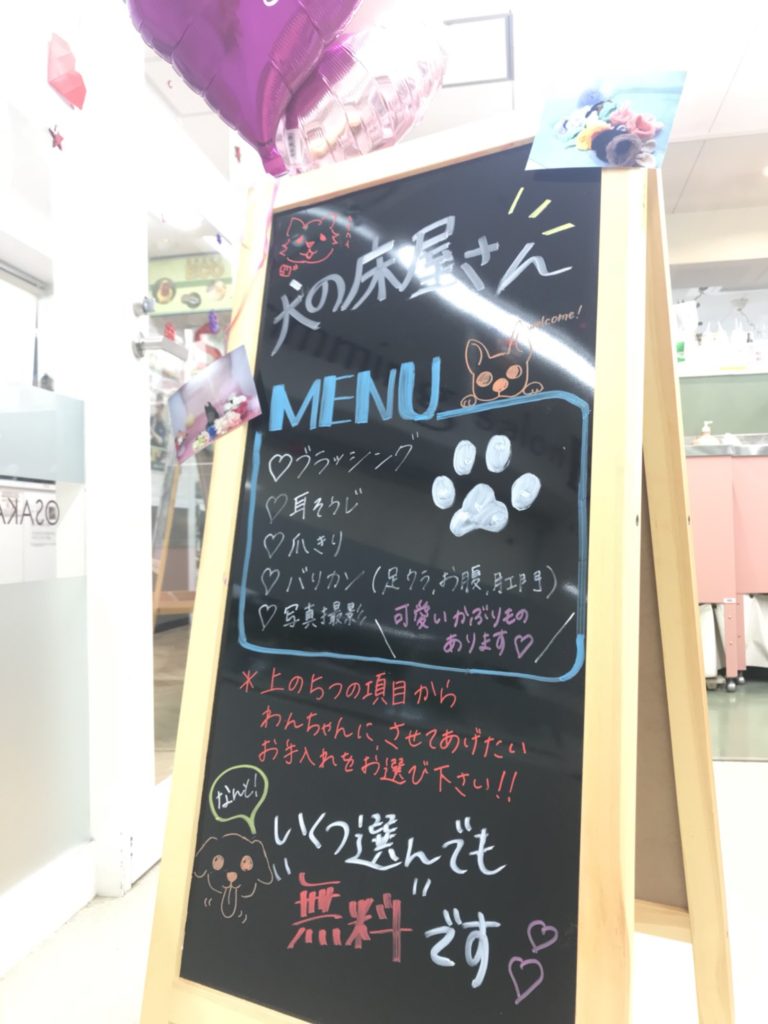 犬の床屋さん
welcome!
MENU
♡ブラッシング
♡耳そうじ
♡爪きり
♡バリカン(足ウラ,お腹,肛門)
♡写真撮影
可愛いかぶりもの
あります♡
*上の5つの項目から
わんちゃんに、させてあげたい
お手入れをお選び下さい!!
なんと!
いくつ選んでも
"無料"です
@SAKA